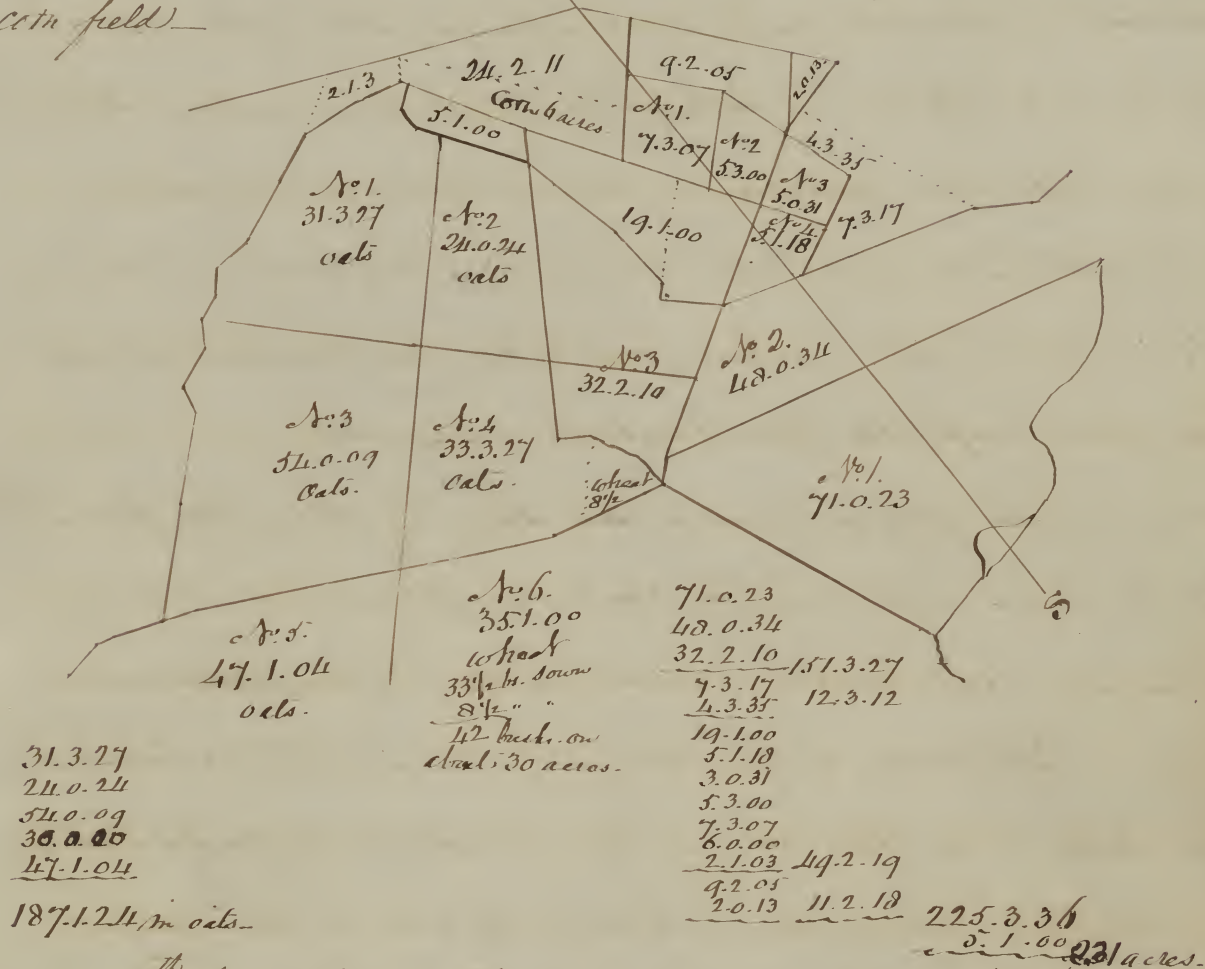 corn field
2.1.3
24.2.11
Corn 6 acres
5.1.00
9.2.05
2.0.13.
No. 1.
7.3.07
No. 2
5.3.00
4.3.35
No. 3
5.0.31
No. 4
5.1.18
7.3.17
19.1.00
No. 1.
31.3.27
oats
No. 2
24.0.24
oats
No. 3
32.2.10
No. 2.
48.0.34
No. 3
54.0.09
Oats.
No. 4
33.3.27
Oats.
wheat
8 1/2
No. 1.
71.0.23
S
No. 5.
47.1.04
oats.
No. 6.
35.1.00
wheat
33 1/2 bs. sown
8 1/2 " "
42 bush. on
about 30 acres.
71.0.23
48.0.34
32.2.10 151.3.27
7.3.17
4.3.35 12.3.12
19.1.00
5.1.18
3.0.31
5.3.00
7.3.07
6.0.00
2.1.03 49.2.19
9.2.05
2.0.13 11.2.18
225.3.36
5.1.00 231 acres.
31.3.27
24.0.24
54.0.09
30.0.00
47.1.04
187.1.24 in oats